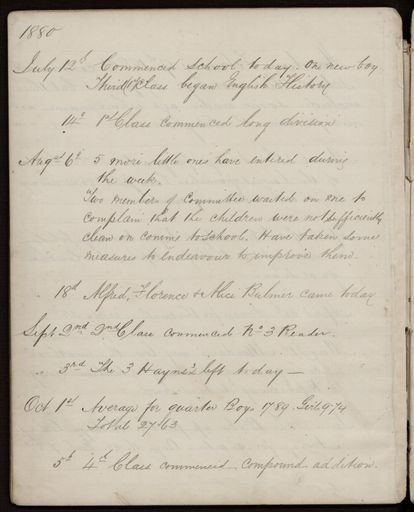 1880
July 12th Commenced School to-day. One new boy
Third Class began English History
14th 1st Class commenced long division
Augst 6th 5 more little ones have entered during
the week.
Two members of Committee waited on me to
complain that the children were not sufficiently
clean on coming to School. Have taken some
measures to endeavour to improve them.
" 18th Alfred, Florence & Alice Bulmer came today
Sept 2nd 2nd Class commenced No 3 Reader.
" 3rd The 3 Haynes's left to-day —
Oct 1st Average for quarter Boys 17.89 Girls 9.74
Total 27.63
5th 4th Class commenced compound addition.